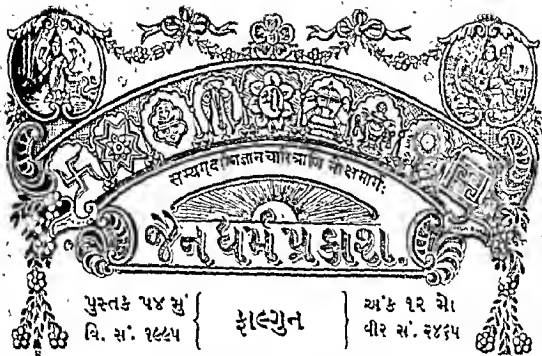 सम्यग्दर्शनज्ञानचारित्राणि मोक्षमार्गः
જૈન ધર્મ પ્રકાશ.
પુસ્તક ૫૪ મું
વિ. સં. ૧૯૯૫
ફાલ્ગુન
અંક ૧૨ મો
વીર સં. ૨૪૬૫